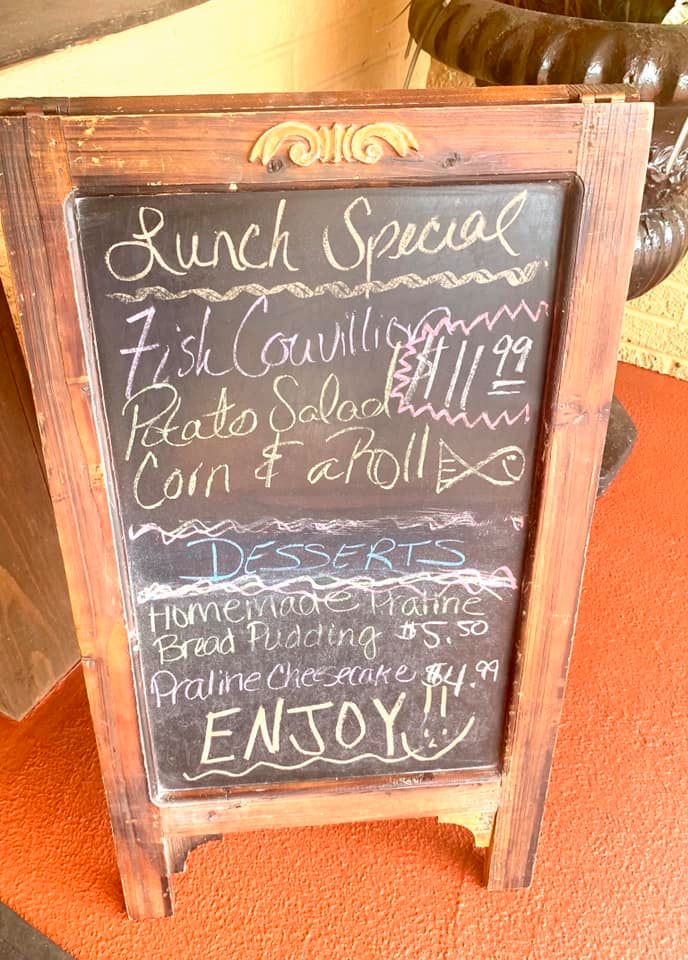 Lunch Special
Fish Couvillion $11.99
Potato Salad
Corn & a Roll
DESSERTS
Homemade Praline
Bread Pudding $5.50
Praline Cheesecake $4.99
ENJOY!!